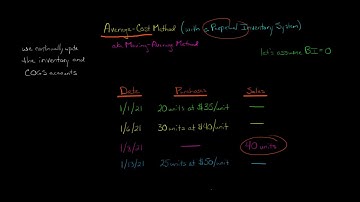 Average-Cost Method (with a Perpetual Inventory System)
aka Moving-Average Method
we continually update
the inventory and
COGS accounts
let's assume BI=0
Date Purchases Sales
1/1/21 20 units at $35/unit —
1/6/21 30 units at $40/unit —
1/8/21 — 40 units
1/13/21 25 units at $50/unit —